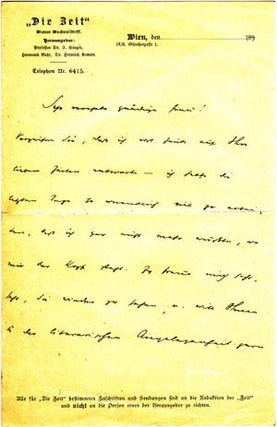 „Die Zeit“
Wiener Wochenschrift.
Herausgeber:
Professor Dr. I. Singer,
Hermann Bahr, Dr. Heinrich Kanner.
Telephon Nr. 6415.
Wien, den 189
IX/3, Günthergasse 1.
Sehr verehrte gnädige Frau!
Verzeihen Sie, daß ich erst heute auf Ihre
lieben Zeilen antworte — ich hatte die
letzten Tage so unendlich viel zu
daß ich gar nicht mehr wußte, wo
mir der Kopf steht. Ich freue mich sehr,
sehr, Sie wieder zu sehen, u. will Ihnen
in der literarischen Angelegenheit gern
Alle für „Die Zeit“ bestimmten Zuschriften und Sendungen sind an die Redaktion der „Zeit“
und nicht an die Person eines der Herausgeber zu richten.